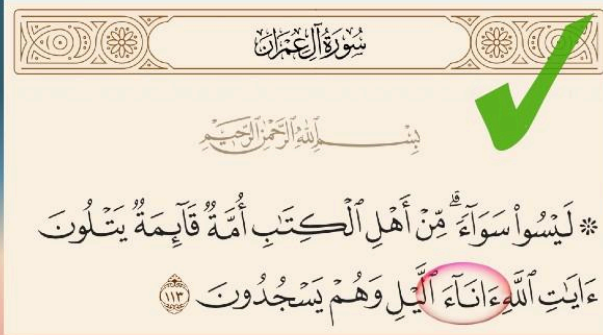 سُورَةُ آلِ عِمۡرَانَ
بِسۡمِ ٱللَّهِ ٱلرَّحۡمَٰنِ ٱلرَّحِيمِ
۞ لَيۡسُواْ سَوَآءٗۗ مِّنۡ أَهۡلِ ٱلۡكِتَٰبِ أُمَّةٞ قَآئِمَةٞ يَتۡلُونَ
ءَايَٰتِ ٱللَّهِ ءَانَآءَ ٱلَّيۡلِ وَهُمۡ يَسۡجُدُونَ ١١٣